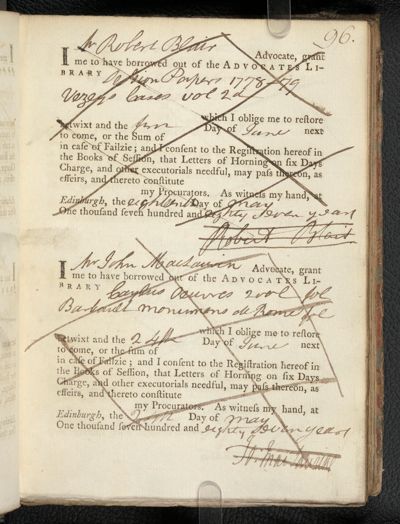 96.
I Mr Robert Blair Advocate, grant
me to have borrowed out of the ADVOCATES LI-
BRARY Session Papers 1778-79
Vezeys Cases vol 2d
betwixt and the which I oblige me to restore
Day of June next
to come, or the Sum of
in case of Failzie; and I consent to the Registration hereof in
the Books of Session, that Letters of Horning on six Days
Charge, and other executorials needful, may pass thereon, as
effeirs, and thereto constitute
my Procurators. As witness my hand, at
Edinburgh, the eighteenth Day of May
One thousand seven hundred and eighty seven years
Robert Blair
I Mr John Maclaurin Advocate, grant
me to have borrowed out of the ADVOCATES LI-
BRARY Caylus Oeuvres 2 vol fol
monumens de Rome fol
betwixt and the 24th which I oblige me to restore
Day of June next
to come, or the sum of
in case of Failzie; and I consent to the Registration hereof in
the Books of Session, that Letters of Horning on six Days
Charge, and other executorials needful, may pass thereon, as
effeirs, and thereto constitute
my Procurators. As witness my hand, at
Edinburgh, the Day of May
One thousand seven hundred and eighty seven years